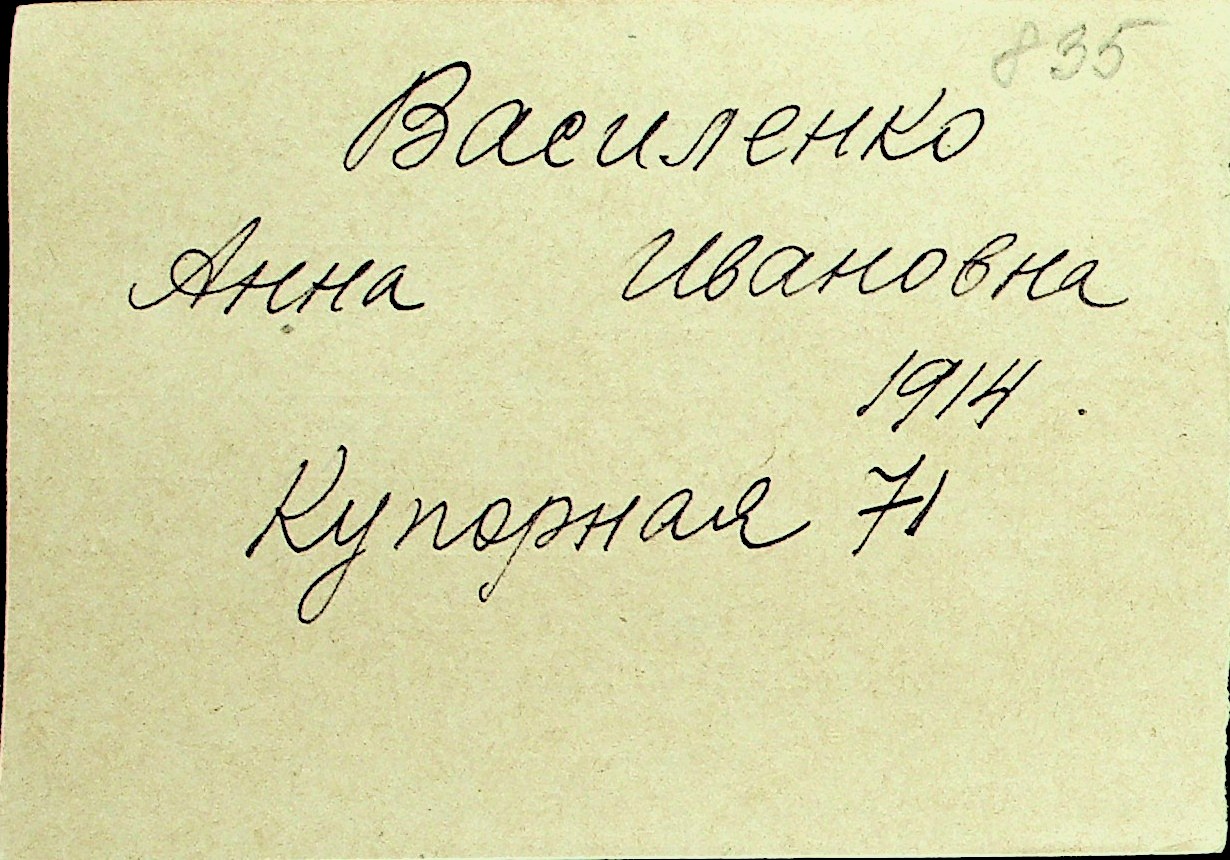 835
Василенко
Анна Ивановна
1914.
Купорная 71